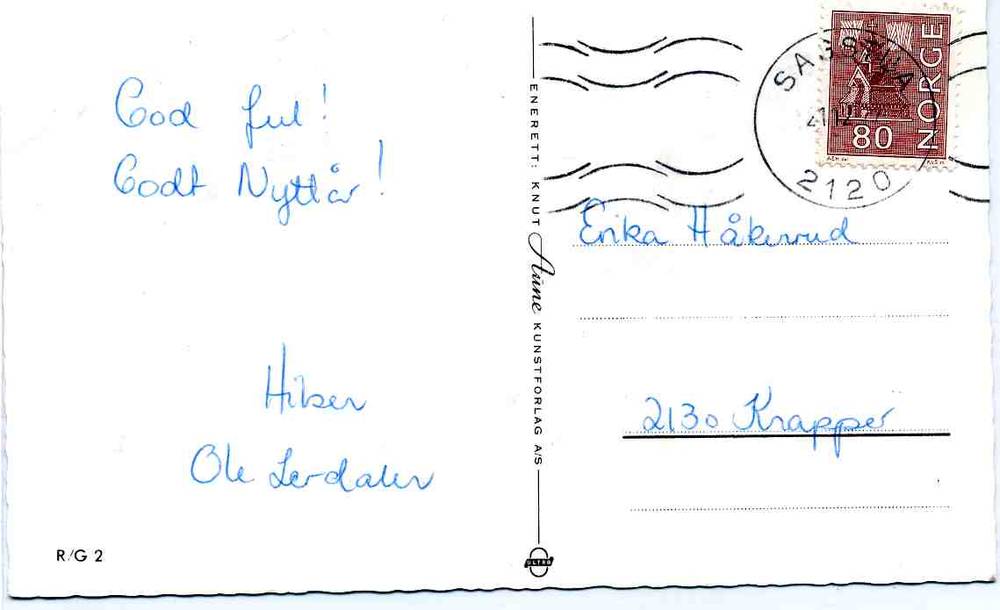 God Jul!
Godt Nyttår!
Hilsen
Ole Lerdalen
R/G 2
ENERETT: KNUT Aune KUNSTFORLAG A/S
NORGE
80
2120
Erika Håkerud
2130 Knapper